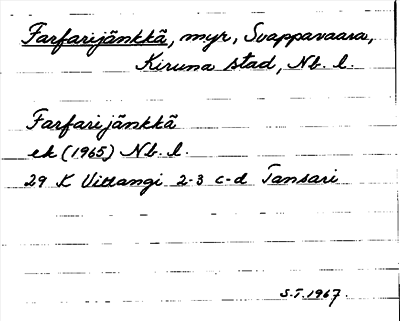 Farfarijänkkä, myr, Svappavaara,
Kiruna stad, Nb. l.
Farfarijänkkä
ek (1965) Nb. l.
29 K Vittangi 2-3 c-d Tansari
S.T. 1967.